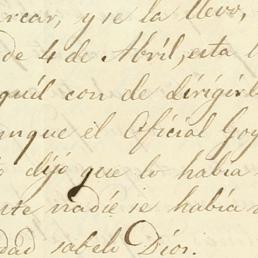 rcar, y se la llevo,
de 4 de Abril, esta l
quil con de dirigirl
unque el Oficial Goy
dijo que lo habia
nte nadie se habia
dad sabelo Dios.